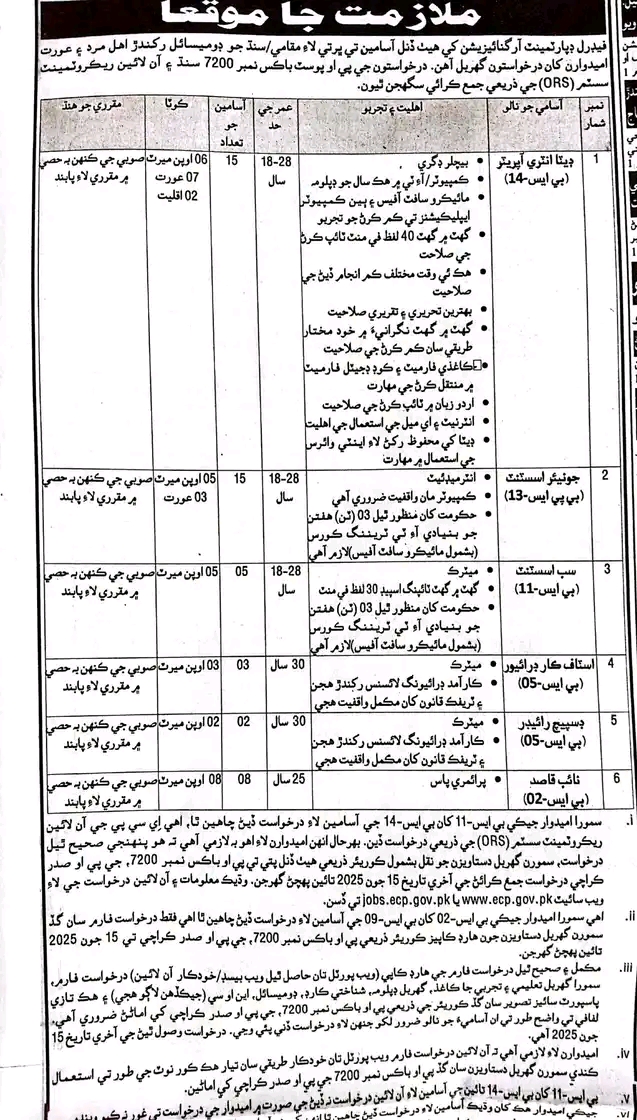 ملازمت جا موقعا
فيڊرل ڊپارٽمينٽ آرگنائيزيشن کي هيٺ ڏنل آسامين تي ڀرتي لاءِ مقامي/سنڌ جو ڊوميسائل رکندڙ اهل مرد ۽ عورت
اميدوارن کان درخواستون گهربل آهن. درخواستون جي پي او پوسٽ باڪس نمبر 7200 سنڌ ۽ آن لائين ريڪروٽمينٽ
سسٽم (ORS) جي ذريعي جمع ڪرائي سگهجن ٿيون.
نمبر شمار
آسامي جو نالو
اهليت ۽ تجربو
عمر جي حد
آسامين جو تعداد
ڪوٽا
مقرري جو هنڌ
1
ڊيٽا انٽري آپريٽر
(بي ايس-14)
بيچلر ڊگري
ڪمپيوٽر/آءِ ٽي ۾ هڪ سال جو ڊپلومه
مائيڪرو سافٽ آفيس ۽ ٻين ڪمپيوٽر
ايپليڪيشنز تي ڪم ڪرڻ جو تجربو
گهٽ ۾ گهٽ 40 لفظ في منٽ ٽائپ ڪرڻ
جي صلاحت
هڪ ئي وقت مختلف ڪم انجام ڏيڻ جي
صلاحيت
بهترين تحريري ۽ تقريري صلاحيت
گهٽ ۾ گهٽ نگرانيءَ ۾ خود مختار
طريقي سان ڪم ڪرڻ جي صلاحيت
ڪاغذي فارميٽ ۽ ڪوڊ ڊجيٽل فارميٽ
۾ منتقل ڪرڻ جي مهارت
اردو زبان ۾ ٽائپ ڪرڻ جي صلاحيت
انٽرنيٽ ۽ اي ميل جي استعمال جي اهليت
ڊيٽا کي محفوظ رکڻ لاءِ اينٽي وائرس
جي استعمال ۾ مهارت
18-28
سال
15
06 اوپن ميرٽ
07 عورت
02 اقليت
صوبي جي ڪنهن به حصي
۾ مقرري لاءِ پابند
2
جونيئر اسسٽنٽ
(بي پي ايس-13)
انٽرميڊئيٽ
ڪمپيوٽر مان واقفيت ضروري آهي
حڪومت کان منظور ٿيل 03 (ٽن) هفتن
جو بنيادي آءِ ٽي ٽريننگ ڪورس
(بشمول مائيڪرو سافٽ آفيس) لازم آهي
18-28
سال
15
05 اوپن ميرٽ
03 عورت
صوبي جي ڪنهن به حصي
۾ مقرري لاءِ پابند
3
سب اسسٽنٽ
(بي ايس-11)
ميٽرڪ
گهٽ ۾ گهٽ ٽائپنگ اسپيڊ 30 لفظ في منٽ
حڪومت کان منظور ٿيل 03 (ٽن) هفتن
جو بنيادي آءِ ٽي ٽريننگ ڪورس
(بشمول مائيڪرو سافٽ آفيس) لازم آهي
18-28
سال
05
05 اوپن ميرٽ
صوبي جي ڪنهن به حصي
۾ مقرري لاءِ پابند
4
اسٽاف ڪار ڊرائيور
(بي ايس-05)
ميٽرڪ
ڪارآمد ڊرائيونگ لائسنس رکندڙ هجن
۽ ٽريفڪ قانون کان مڪمل واقفيت هجي
30 سال
03
03 اوپن ميرٽ
صوبي جي ڪنهن به حصي
۾ مقرري لاءِ پابند
5
ڊسپيچ رائيڊر
(بي ايس-05)
ميٽرڪ
ڪارآمد ڊرائيونگ لائسنس رکندڙ هجن
۽ ٽريفڪ قانون کان مڪمل واقفيت هجي
30 سال
02
02 اوپن ميرٽ
صوبي جي ڪنهن به حصي
۾ مقرري لاءِ پابند
6
نائب قاصد
(بي ايس-02)
پرائمري پاس
25 سال
08
08 اوپن ميرٽ
صوبي جي ڪنهن به حصي
۾ مقرري لاءِ پابند
i. سمورا اميدوار جيڪي بي ايس-11 کان بي ايس-14 جي آسامين لاءِ درخواست ڏيڻ چاهين ٿا، اهي اِي سي پي جي آن لائين
ريڪروٽمينٽ سسٽم (ORS) جي ذريعي درخواست ڏين. بهرحال انهن اميدوارن لاءِ اهو به لازمي آهي ته هو پنهنجي صحيح ٿيل
درخواست، سمورن گهربل دستاويزن جو نقل بشمول ڪوريئر ذريعي هيٺ ڏنل پتي تي پي او باڪس نمبر 7200، جي پي او صدر
ڪراچي درخواست جمع ڪرائڻ جي آخري تاريخ 15 جون 2025 تائين پهچڻ گهرجن. وڌيڪ معلومات ۽ آن لائين درخواست جي لاءِ
ويب سائيٽ www.ecp.gov.pk يا jobs.ecp.gov.pk تي ڏسن.
ii. اهي سمورا اميدوار جيڪي بي ايس-02 کان بي ايس-09 جي آسامين لاءِ درخواست ڏيڻ چاهين ٿا اهي فقط درخواست فارم سان گڏ
سمورن گهربل دستاويزن جون هارڊ ڪاپيز ڪوريئر ذريعي پي او باڪس نمبر 7200، جي پي او صدر ڪراچي تي 15 جون 2025
تائين پهچڻ گهرجن.
iii. مڪمل ۽ صحيح ٿيل درخواست فارم جي هارڊ ڪاپي (ويب پورٽل تان حاصل ٿيل ويب بيسڊ/خودڪار آن لائين) درخواست فارم،
سمورا گهربل تعليمي ۽ تجربي جا ڪاغذ، گهربل ڊپلوم، شناختي ڪارڊ، ڊوميسائل، اين او سي (جيڪڏهن لاڳو هجي) ۽ هڪ تازي
پاسپورٽ سائيز تصوير سان گڏ ڪوريئر جي ذريعي پي او باڪس نمبر 7200، جي پي او صدر ڪراچي کي اماڻڻ ضروري آهي،
لفافي تي واضح طور تي ان آساميءَ جو نالو ضرور لکو جنهن لاءِ درخواست ڏني پئي وڃي. درخواست وصول ٿيڻ جي آخري تاريخ 15
جون 2025 آهي.
iv. اميدوارن لاءِ لازمي آهي ته آن لائين درخواست فارم ويب پورٽل تان خودڪار طريقي سان تيار هڪ ڪور نوٽ جي طور تي استعمال
ڪندي سمورن گهربل دستاويزن سان گڏ پي او باڪس نمبر 7200 جي پي او صدر ڪراچي کي اماڻين.
v. بي ايس-11 کان بي ايس-14 تائين جي آسامين لاءِ آن لائين درخواست نه ڏيڻ جي صورت ۾ اميدوار جي درخواست تي غور نه ڪيو ويندو